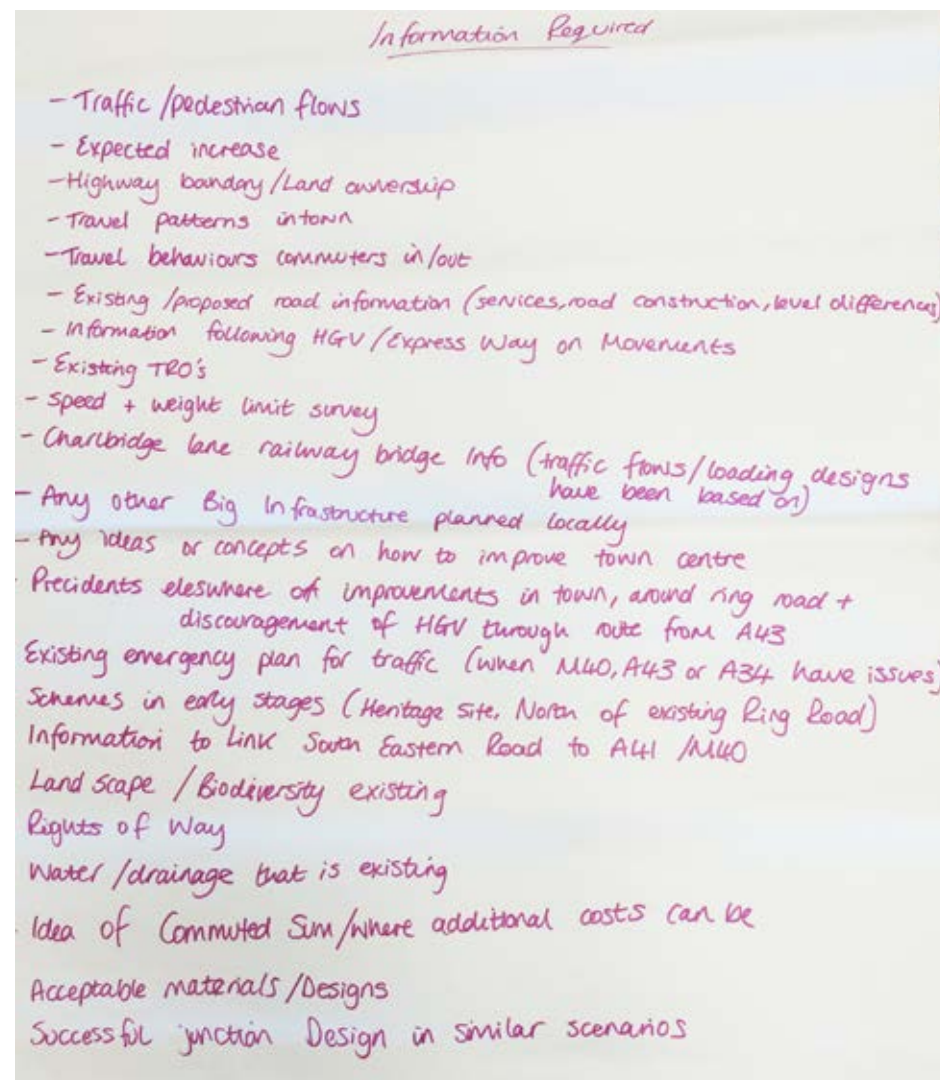 Information Required
- Traffic/pedestrian flows
- Expected increase
- Highway boundary/Land ownership
- Travel patterns in town
- Travel behaviours commuters in/out
- Existing/proposed road information (services, road construction, level differences)
- Information following HGV/Express Way on Movements
- Existing TRO's
- Speed + weight limit survey
- Charlbridge lane railway bridge Info (traffic flows/loading designs
have been based on)
- Any other Big Infrastructure planned locally
- Any ideas or concepts on how to improve town centre
Precidents eleswhere of improvements in town, around ring road +
discouragement of HGV through route from A43
Existing emergency plan for traffic (when M40, A43 or A34 have issues)
Schemes in early stages (Heritage Site, North of existing Ring Road)
Information to Link South Eastern Road to A41/M40
Landscape/Biodiversity existing
Rights of Way
Water/drainage that is existing
- Idea of Commuted Sum/where additional costs can be
Acceptable materials/Designs
Successful junction Design in similar scenarios